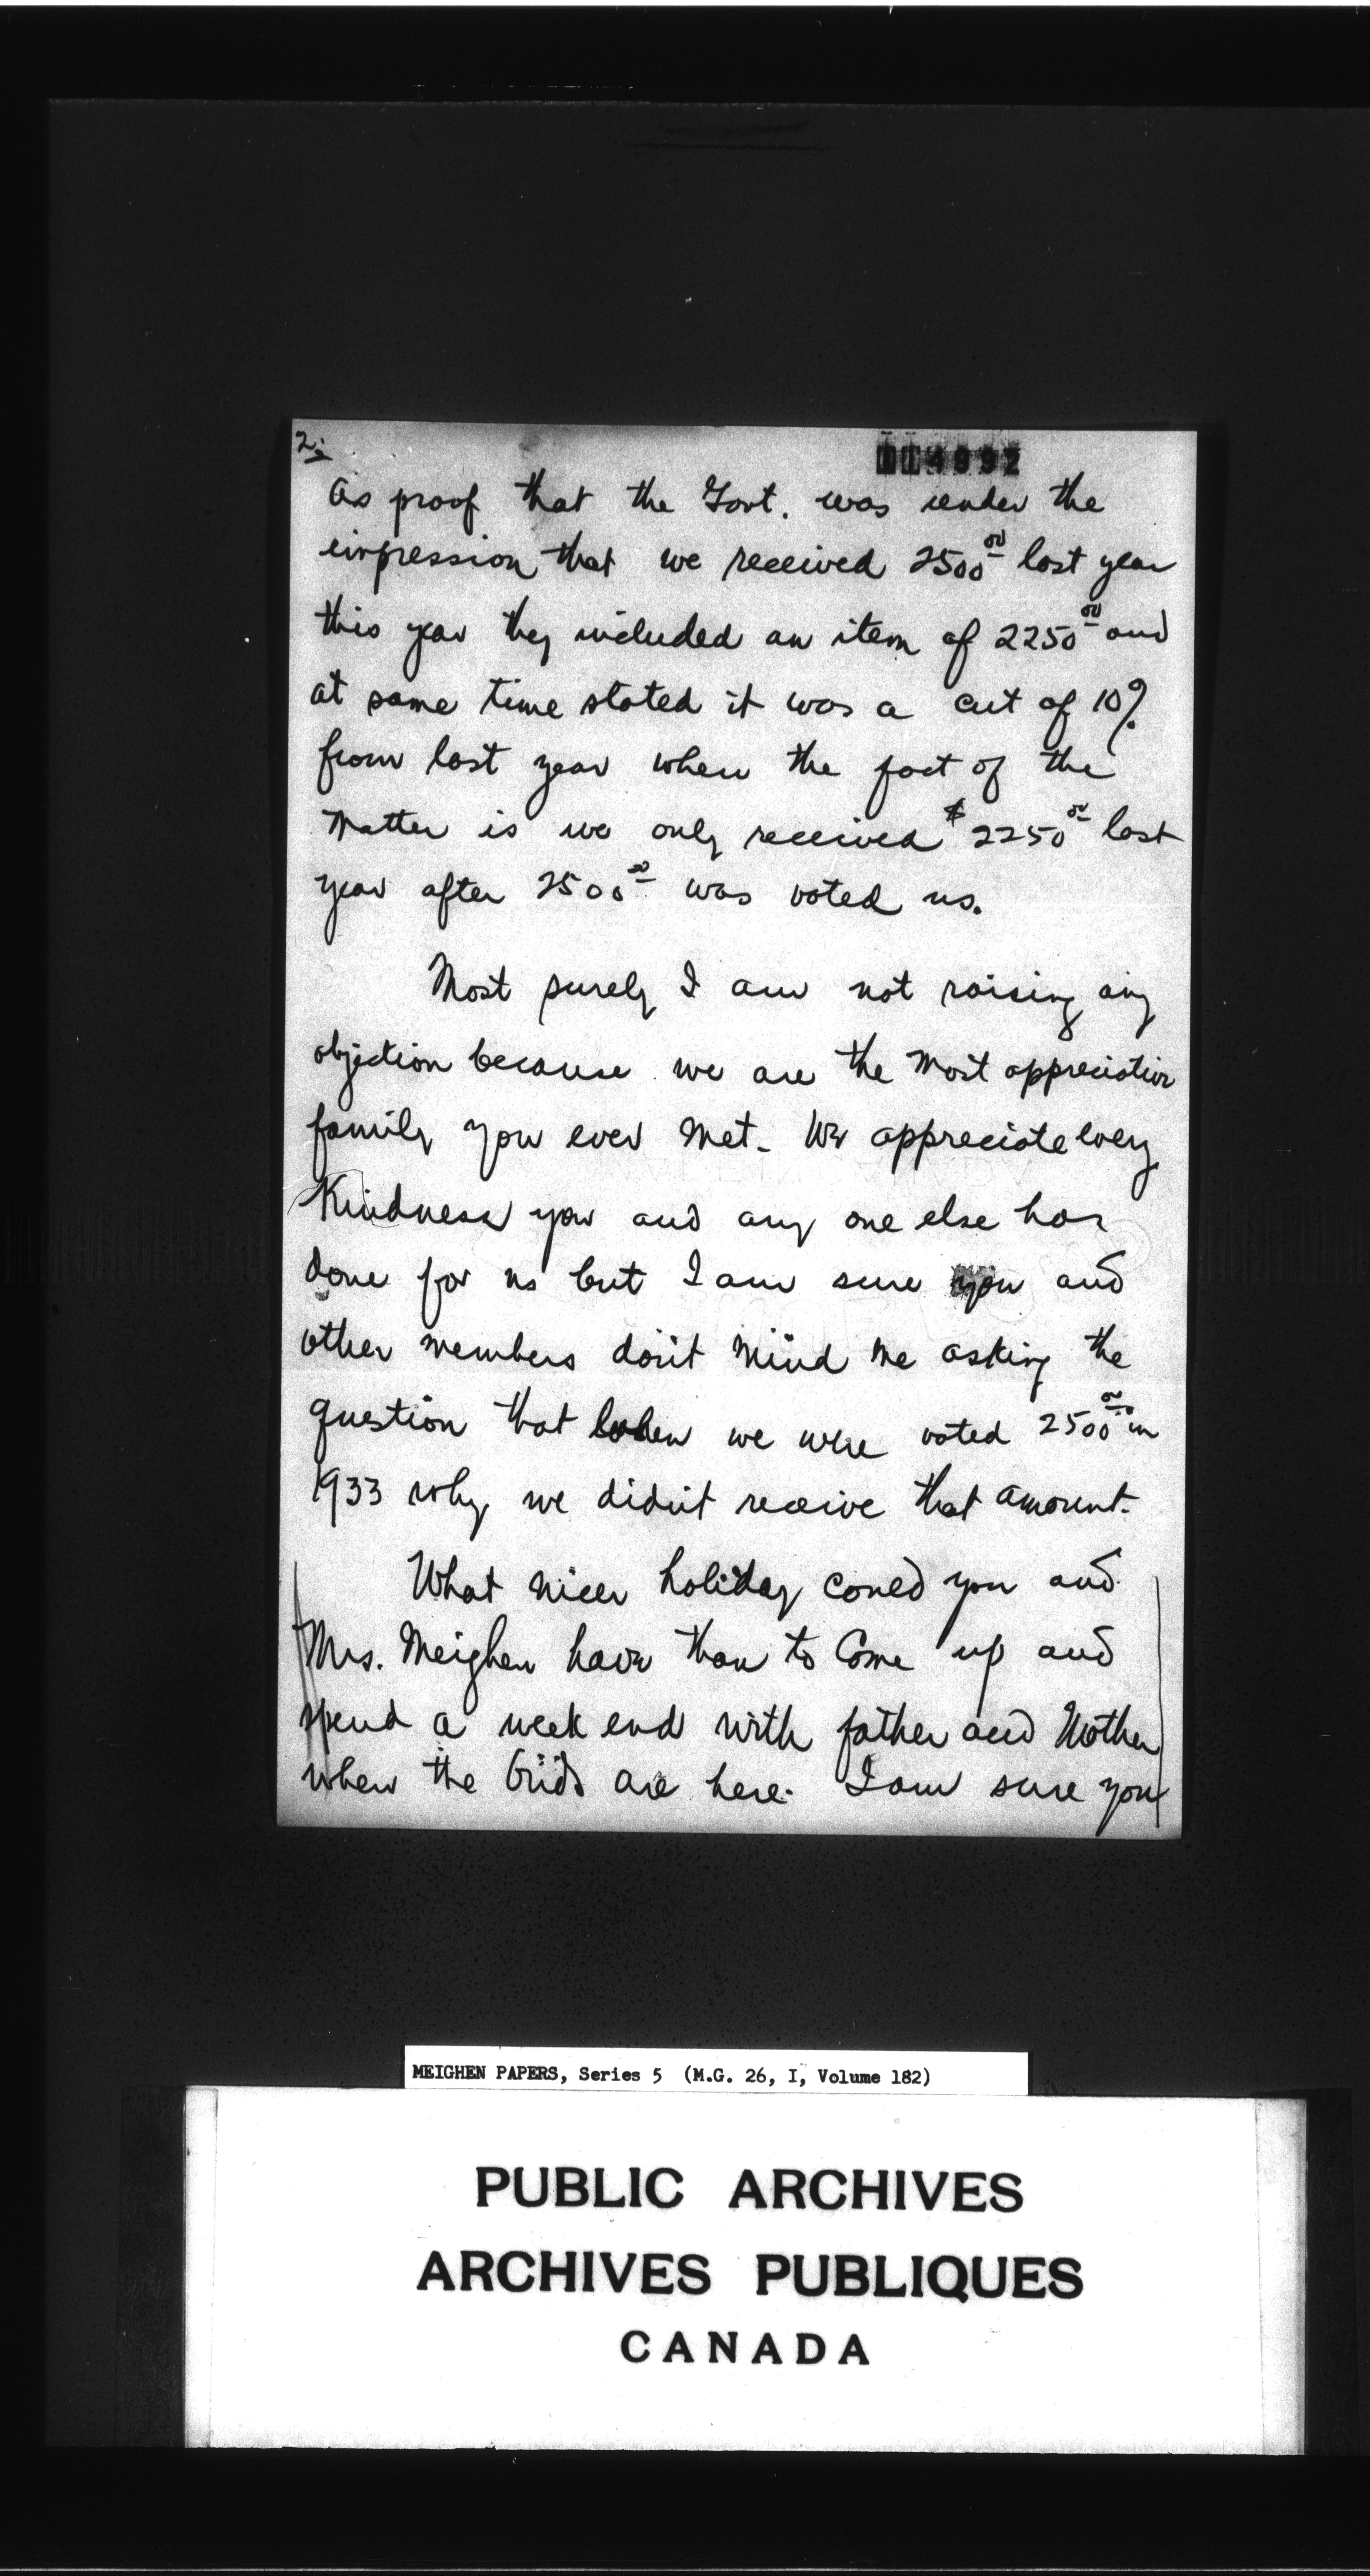 2.
114992
As proof that the Govt. was under the
impression that we received 2500.00 last year
this year they included an item of 2250.00 and
at same time stated it was a cut of 10%
from last year when the fact of the
matter is we only received $2250.00 last
year after 2500.00 was voted us.
Most surely I am not raising any
objection because we are the most appreciative
family you ever met. We appreciate every
Kindness you and any one else has
done for us but I am sure you and
other members don't mind me asking the
question that when we were voted 2500.00 in
1933 why we didn't receive that amount.
What nicer holiday could you and
Mrs. Meighen have than to come up and
spend a week end with father and Mother
when the birds are here. I am sure you
MEIGHEN PAPERS, Series 5 (M.G. 26, I, Volume 182)
PUBLIC ARCHIVES
ARCHIVES PUBLIQUES
CANADA